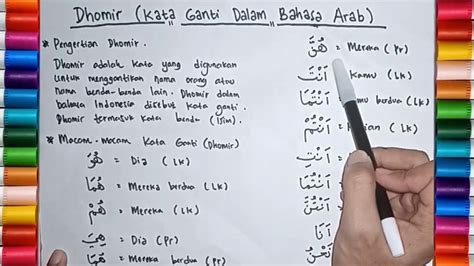 Dhomir (Kata Ganti Dalam Bahasa Arab)
* Pengertian Dhomir.
Dhomir adalah kata yang digunakan
untuk menggantikan nama orang atau
nama benda-benda lain. Dhomir dalam
bahasa Indonesia disebut kata ganti.
Dhomir termasuk kata benda (Isim).
* Macam-macam Kata Ganti (Dhomir)
هُوَ = Dia (Lk)
هُمَا = Mereka berdua (Lk)
هُمْ = Mereka (Lk)
هِيَ = Dia (Pr)
هُمَا = Mereka berdua (Pr)
هُنَّ = Mereka (Pr)
اَنْتَ = Kamu (Lk)
اَنْتُمَا = berdua (Lk)
اَنْتُمْ = (Lk)
اَنْتِ
اَنْتُمَا
اَنْتُنَّ
اَنَا
نَحْنُ